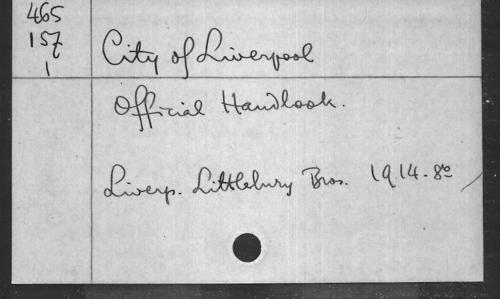 465
157
1
City of Liverpool
Official Handbook.
Liverp. Littlebury Bros. 1914. 8º